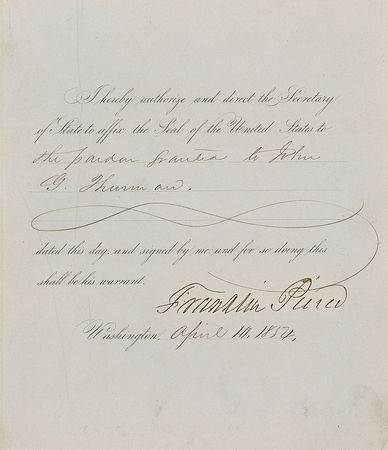 I hereby authorize and direct the Secretary
of State to affix the Seal of the United States to
the pardon granted to John
G. Thurman.
dated this day, and signed by me and for so doing this
shall be his warrant.
Franklin Pierce
Washington, April 14, 1854.